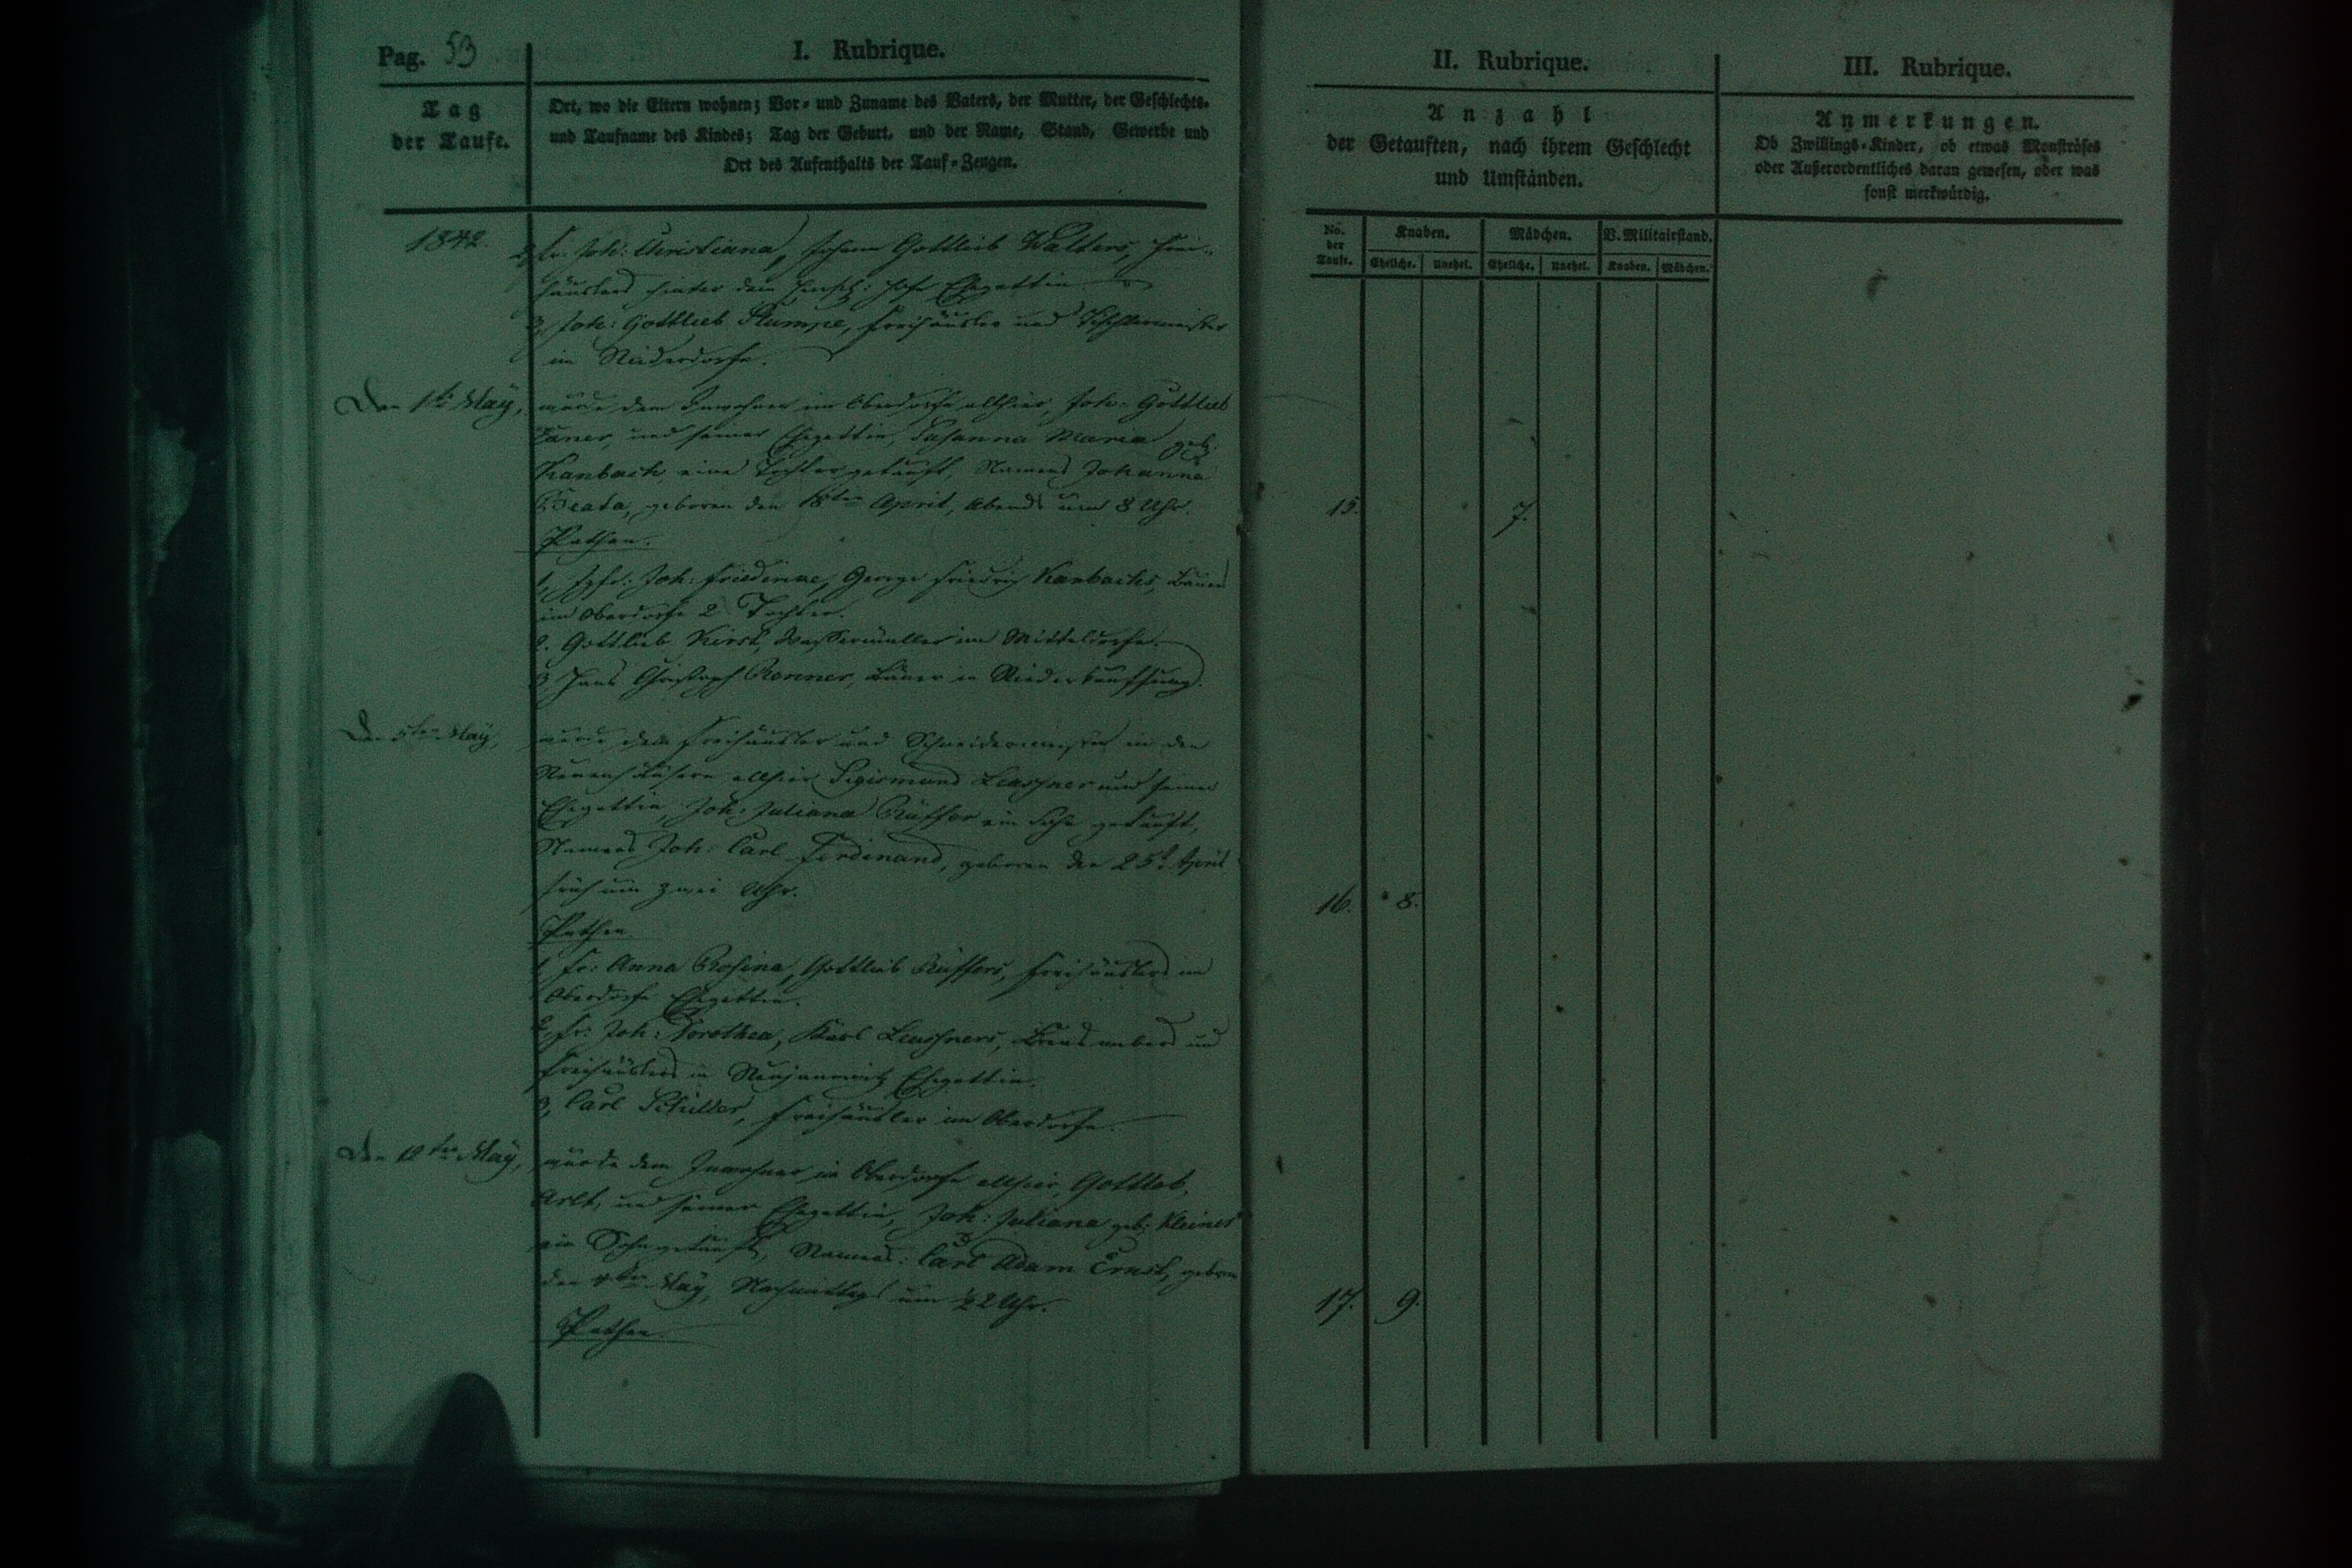 Pag. 53
I. Rubrique.
Tag
der Taufe.
Ort, wo die Eltern wohnen; Vor- und Zuname des Vaters, der Mutter, der Geschlechts-
und Taufname des Kindes; Tag der Geburt, und der Name, Stand, Gewerbe und
Ort des Aufenthalts der Tauf-Zeugen.
1842.
2, Fr. Joh: Christiana, Johann Gottlieb Walters, Frei-
häuslers hinter dem Hofe Ehegattin.
3, Joh: Gottlieb Stumpe, Freihäusler und Tischlermeister
im Niederdorfe.
Den 1ten May,
wurde dem Inwohner im Oberdorfe allhier, Joh: Gottlieb
und seiner Ehegattin, Susanna Maria geb:
Kanbach, eine Tochter getauft, Namens Johanna
Beata, geboren den 18ten April, Abends um 8 Uhr.
Pathen.
1, Joh: Friederike, George Friedrich Kanbachs, Bauers
im Oberdorfe 2 Tochter.
2. Gottlieb Kirst, Wassermüller im Mitteldorfe.
3, Hans Christoph Renner, Bauer in Niederkauffung.
Den 5ten May,
wurde dem Freihäusler und Schneidermeister in den
Neuenhäusern allhier Sigismund Leuschner und seiner
Ehegattin, Joh: Juliana Rüffer ein Sohn getauft,
Namens Joh: Carl Ferdinand, geboren den 25t. April
früh um zwei Uhr.
Pathen
1, Fr: Anna Rosina, Gottlieb Rüffers, Freihäuslers im
Oberdorfe Ehegattin.
2, Fr: Joh: Dorothea, Karl Leuschners, und
Freihäuslers in Neujannowitz Ehegattin.
3, Carl Freihäusler im Oberdorfe.
Den 12ten May,
wurde dem Inwohner in Oberdorfe allhier, Gottlob
Arlt, und seiner Ehegattin, Joh: Juliana geb: Kleinert
ein Sohn getauft, Namens: Carl Adam Ernst, geboren
den May, Nachmittags um ½2 Uhr.
Pathen
II. Rubrique.
Anzahl
der Getauften, nach ihrem Geschlecht
und Umständen.
No.
der
Taufe.
Knaben.
Mädchen.
V. Militairstand.
Eheliche. Unehel. Eheliche. Unehel. Knaben. Mädchen.
15. 7.
16. 8.
17. 9.
III. Rubrique.
Anmerkungen.
Ob Zwillings-Kinder, ob etwas Monströses
oder Außerordentliches daran gewesen, oder was
sonst merkwürdig.